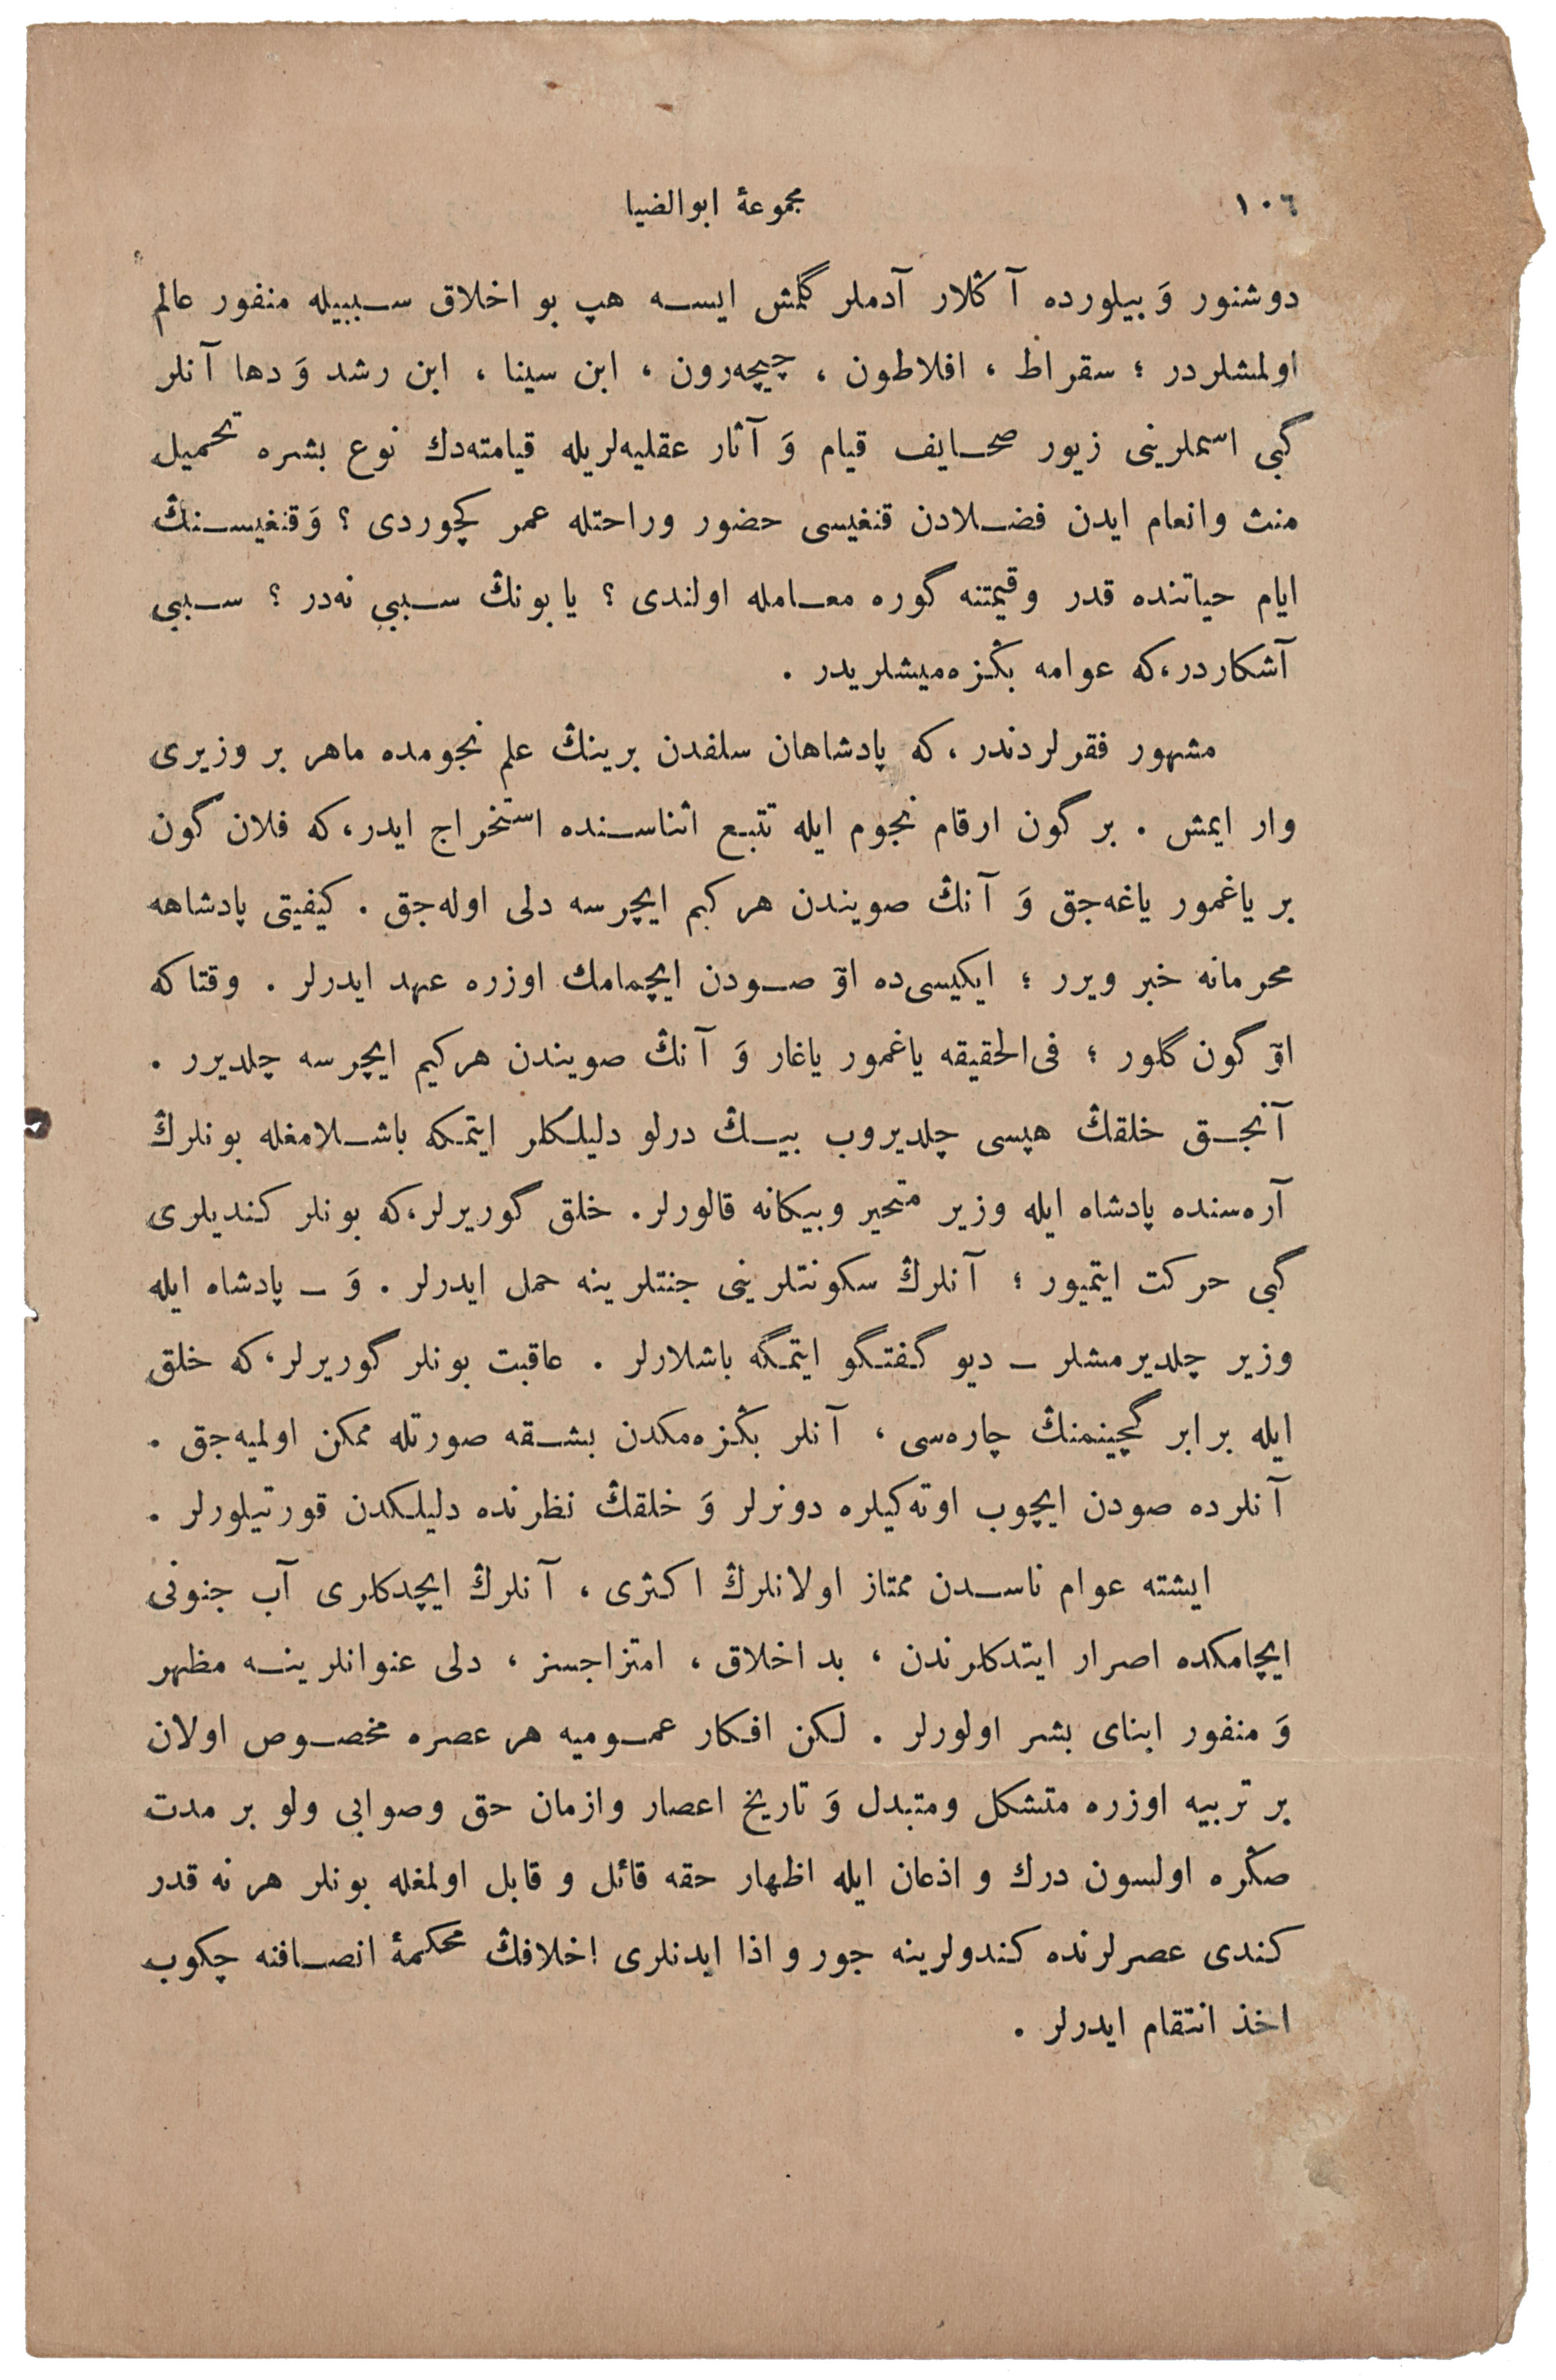 ١٠٦ مجموعهٔ ابوالضيا
دوشنور وَ بيلورده آڭلار آدملر گلمش ايسه هپ بو اخلاق سببيله منفور عالم
اولمشلردر ؛ سقراط ، افلاطون ، چيچه‌رون ، ابن سينا ، ابن رشد وَ دها آنلر
گبى اسملرينى زيور صحايف قيام وَ آثار عقليه‌لريله قيامته‌دك نوع بشره تحميل
منت وانعام ايدن فضلادن قنغيسى حضور وراحتله عمر كچوردى ؟ وَ قنغيسنڭ
ايام حياتنده قدر وقيمتنه گوره معامله اولندى ؟ يا بونڭ سببى نه‌در ؟ سببى
آشكاردر، كه عوامه بڭزه‌ميشلريدر .
مشهور فقرلردندر ، كه پادشاهان سلفدن برينڭ علم نجومده ماهر بر وزيرى
وار ايمش . بر گون ارقام نجوم ايله تتبع اثناسنده استخراج ايدر، كه فلان گون
بر ياغمور ياغه‌جق وَ آنڭ صويندن هر كيم ايچرسه دلى اوله‌جق . كيفيتى پادشاهه
محرمانه خبر ويرر ؛ ايكيسى‌ده اوٓ صودن ايچمامك اوزره عهد ايدرلر . وقتاكه
اوٓ گون گلور ؛ فى‌الحقيقه ياغمور ياغار وَ آنڭ صويندن هركيم ايچرسه چلديرر .
آنجق خلقڭ هپسى چلديروب بيڭ درلو دليلكلر ايتمكه باشلامغله بونلرڭ
آره‌سنده پادشاه ايله وزير متحير وبيكانه قالورلر . خلق گوريرلر، كه بونلر كنديلرى
گبى حركت ايتميور ؛ آنلرڭ سكونتلرينى جنتلرينه حمل ايدرلر . وَ ـ پادشاه ايله
وزير چلديرمشلر ـ ديو گفتگو ايتمگه باشلارلر . عاقبت بونلر گوريرلر، كه خلق
ايله برابر گچينمنڭ چاره‌سى ، آنلر بڭزه‌مكدن بشقه صورتله ممكن اولميه‌جق .
آنلرده صودن ايچوب اوته‌كيلره دونرلر وَ خلقڭ نظرنده دليلكدن قورتيلورلر .
ايشته عوام ناسدن ممتاز اولانلرڭ اكثرى ، آنلرڭ ايچدكلرى آب جنونى
ايچمامكده اصرار ايتدكلرندن ، بد اخلاق ، امتزاجسز ، دلى عنوانلرينه مظهر
وَ منفور ابناى بشر اولورلر . لكن افكار عموميه هر عصره مخصوص اولان
بر تربيه اوزره متشكل ومتبدل وَ تاريخ اعصار وازمان حق وصوابى ولو بر مدت
صڭره اولسون درك و اذعان ايله اظهار حقه قائل و قابل اولمغله بونلر هر نه قدر
كندى عصرلرنده كندولرينه جور و اذا ايدنلرى اخلافڭ محكمهٔ انصافنه چكوب
اخذ انتقام ايدرلر .